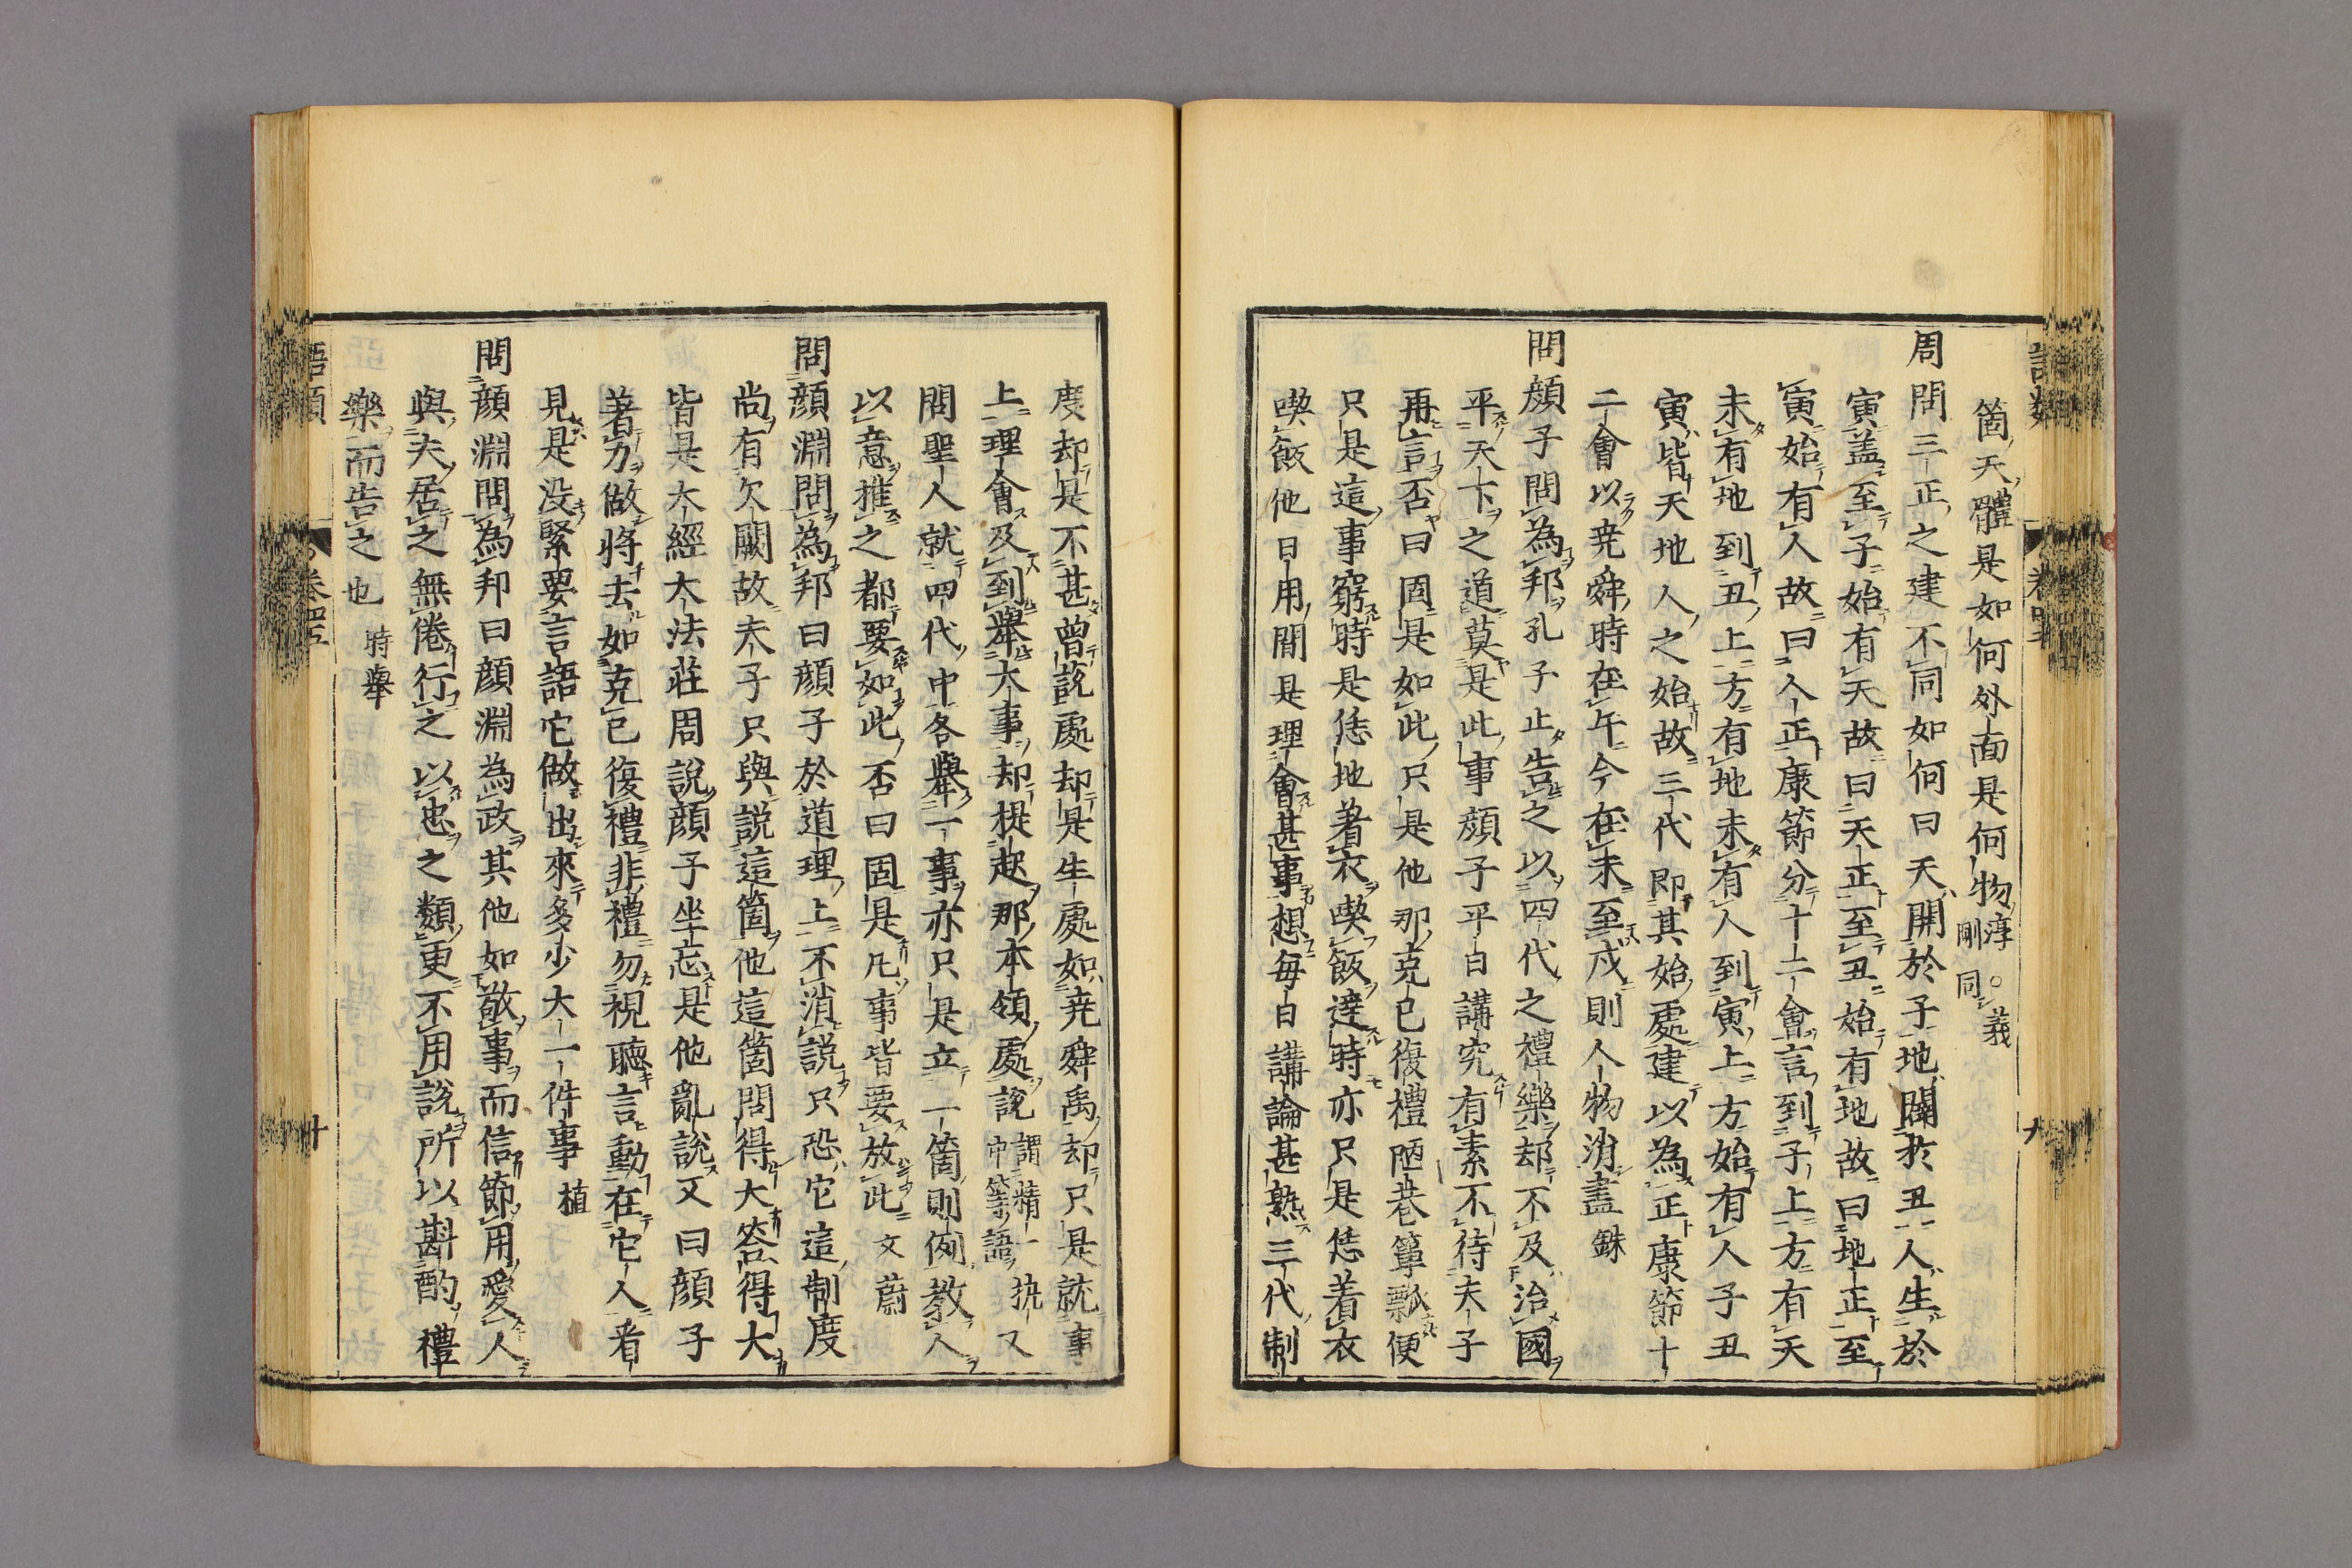 箇天體是如何外面是何物淳○義剛同
周問三正之建不同如何曰天開於子地闢於丑人生於
寅蓋至子始有天故曰天正至丑始有地故曰地正至
寅始有人故曰人正康節分十二會言到子上方有天
未有地到丑上方有地未有人到寅上方始有人子丑
寅皆天地人之始故三代即其始處建以為正康節十
二會以尭舜時在午今在未至戍則人物消盡銖
問顔子問為邦孔子止告之以四代之禮樂却不及治國
平天下之道莫是此事顔子平日講究有素不待夫子
再言否曰固是如此只是他那克已復禮陋巷簞瓢便
只是這事窮時是恁地著衣喫飯達時亦只是恁着衣
喫飯他日用間是理會甚事想每日講論甚熟三代制
度却是不甚曾説處却是生處如尭舜禹却只是就事
上理會及到舉大事却提起那本領處說謂精一執中等語又
問聖人就四代中各舉一事亦只是立一箇則例教人
以意推之都要如此否曰固是凡事皆要放此文蔚
問顔淵問為邦曰顔子於道理上不消説只恐它這制度
尚有欠闕故夫子只與説這箇他這箇問得大答得大
皆是大經大法莊周說顔子坐忘是他亂説又曰顔子
著力做將去如克已復禮非禮勿視聽言動在它人看
見是没緊要言語它做出來多少大一件事植
問顔淵問為邦曰顔淵為政其他如敬事而信節用愛人
與夫居之無倦行之以忠之類更不用說所以斟酌禮
樂而告之也時舉
語類
卷四五
十